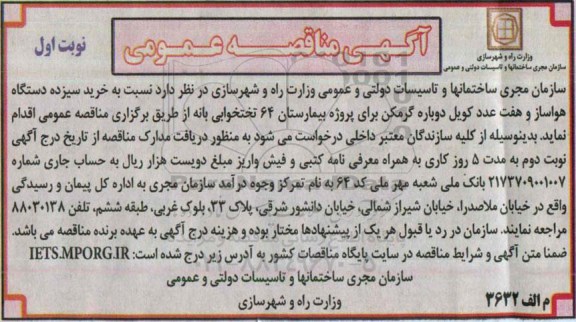 آگهی مناقصه عمومی
نوبت اول
وزارت راه و شهرسازی
سازمان مجری ساختمانها و تاسیسات دولتی و عمومی
سازمان مجری ساختمانها و تاسیسات دولتی و عمومی وزارت راه و شهرسازی در نظر دارد نسبت به خرید سیزده دستگاه
هواساز و هفت عدد کویل دوباره گرمکن برای پروژه بیمارستان ۶۴ تختخوابی بانه از طریق برگزاری مناقصه عمومی اقدام
نماید. بدینوسیله از کلیه سازندگان معتبر داخلی درخواست می شود به منظور دریافت مدارک مناقصه از تاریخ درج آگهی
نوبت دوم به مدت ۵ روز کاری به همراه معرفی نامه کتبی و فیش واریز مبلغ دویست هزار ریال به حساب جاری شماره
۲۱۷۳۷۰۹۰۰۱۰۰۷ بانک ملی شعبه مهر ملی کد ۶۴ به نام تمرکز وجوه درآمد سازمان مجری به اداره کل پیمان و رسیدگی
واقع در خیابان ملاصدرا، خیابان شیراز شمالی، خیابان دانشور شرقی، پلاک ۳۳، بلوک غربی، طبقه ششم، تلفن ۸۸۰۳۰۱۳۸
مراجعه نمایند. سازمان در رد یا قبول هر یک از پیشنهادها مختار بوده و هزینه درج آگهی به عهده برنده مناقصه می باشد.
ضمنا متن آگهی و شرایط مناقصه در سایت پایگاه مناقصات کشور به آدرس زیر درج شده است: IETS.MPORG.IR
سازمان مجری ساختمانها و تاسیسات دولتی و عمومی
وزارت راه و شهرسازی
م الف ۳۶۳۲